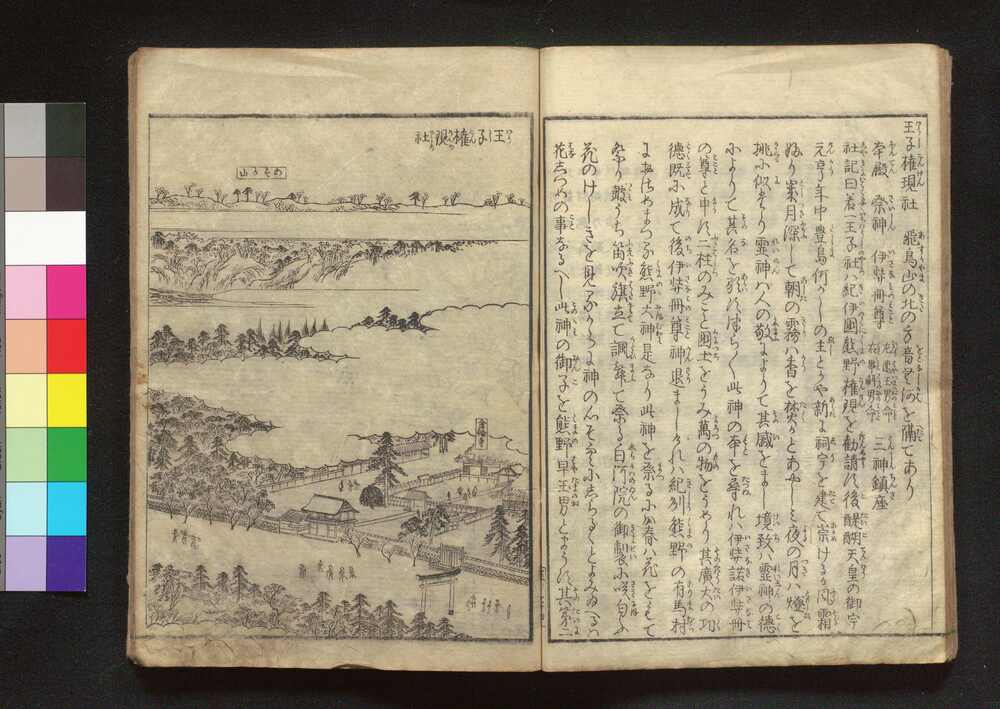 王子権現社 飛鳥山の北の方音無河を隔てあり
本殿 祭神 伊弉冊尊 左 速玉男命 右 事解男命 三神鎮座
社記曰 若一王子社ハ紀伊國熊野権現を勧請す後醍醐天皇の御宇
元亨年中豊島何がしの主とかや新に祠宇を建て崇けるが風霜
ふり累月深して朝の霧ハ香を焚かとあやしミ夜の月ハ燈を
挑に似たり霊神ハ人の敬によりて其威をまし境致ハ霊神の徳
によりて其名を
此神の本を尋れハ伊弉諾伊弉冊
の尊と申す二柱のみこと國土をうみ萬の物をうめり其廣大の功
徳既に成て後伊弉冊尊神退ましけれハ紀州熊野の有馬村
にをさめまつる熊野大神是なり此神を祭るにハ春ハ花をもて
祭り鼓うち笛吹旗立て調舞て祭る白河院の御製に咲匂ふ
花のけしきを見るからに神の心そそらにしらるゝとよみ給へるハ
花しつめの事なるへし此神の御子を熊野早玉男とまうす其第二
王子権現社
あすか山